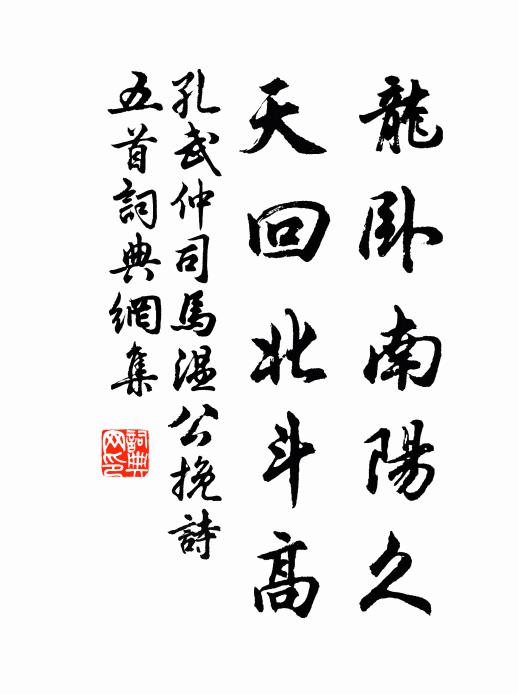 龍卧南陽久
天回北斗高
孔武仲司馬溫公挽詩
五首詞典網集
詞典
网印